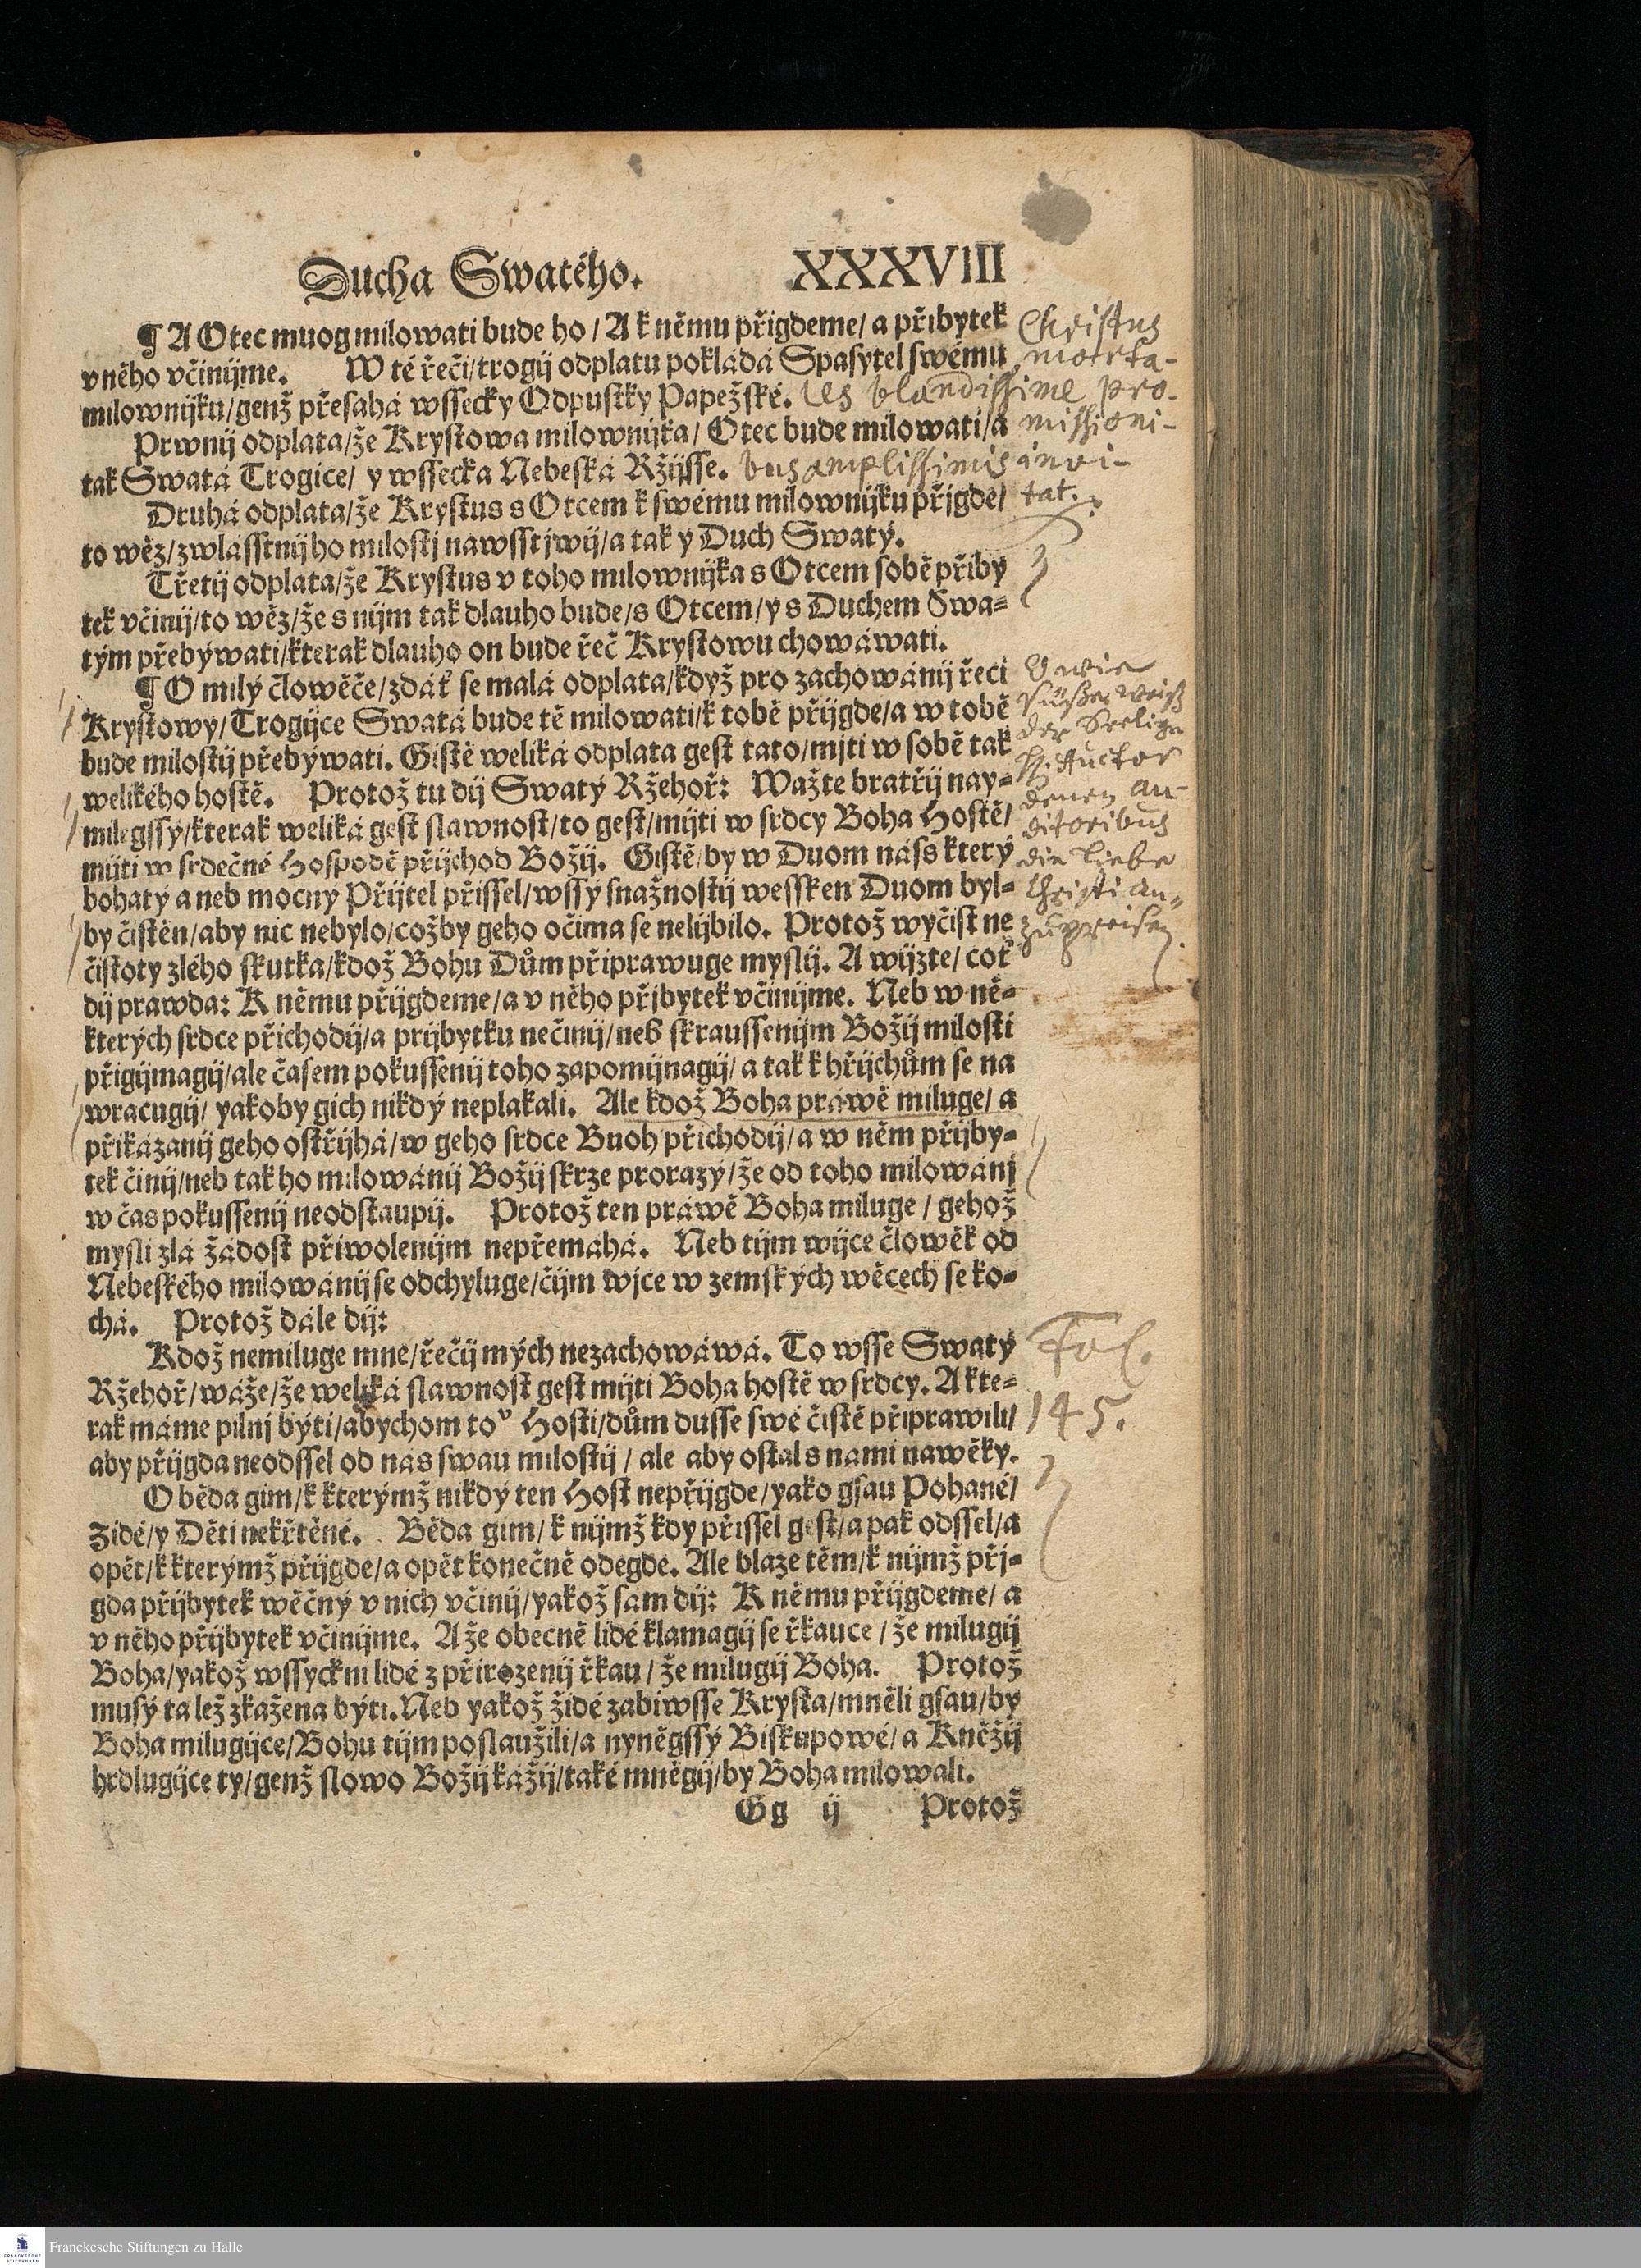 Ducha Swatého. XXXVIII
¶ A Otec muog milowati bude ho / A k němu přigdeme / a přibytek
v něho včinijme. W té řeči / trogij odplatu pokládá Spasytel swému
milownijku / genž přesahá wssecky Odpustky Papežské.
Prwnij odplata / že Krystowa milownijka / Otec bude milowati / a
tak Swatá Trogice / y wssecka Nebeská Ržijsse.
Druhá odplata / že Krystus s Otcem k swému milownijku přjgde /
to wěz / zwlásstnij ho milostj nawsstjwij / a tak y Duch Swatý.
Třetij odplata / že Krystus v toho milownijka s Otcem sobě přiby
tek včinij / to wěz / že s nijm tak dlauho bude / s Otcem / y s Duchem Swa=
tým přebýwati / kterak dlauho on bude řeč Krystowu chowáwati.
¶ O milý člowěče / zdáť se malá odplata / když pro zachowánij řeči
Krystowy / Trogijce Swatá bude tě milowati / k tobě přijgde / a w tobě
bude milostij přebýwati. Gistě weliká odplata gest tato / mjti w sobě tak
welikého hostě. Protož tu dij Swatý Ržehoř: Wažte bratřij nay=
milegssý / kterak weliká gest slawnost / to gest / mijti w srdcy Boha Hostě /
mijti w srdečné Hospodě přijchod Božij. Gistě / by w Duom náss který
bohatý aneb mocný Přijtel přissel / wssý snažnostij wessken Duom byl=
by čistěn / aby nic nebylo / cožby geho očima se nelijbilo. Protož wyčist ne
čistoty zlého skutka / kdož Bohu Dům připrawuge myslij. A wijzte / coť
dij prawda: K němu přijgdeme / a v něho přjbytek včinijme. Neb w ně=
kterých srdce přichodij / a prijbytku nečinij / neb skraussenijm Božij milosti
přigijmagij / ale časem pokussenij toho zapomijnagij / a tak k hřijchům se na
wracugij / yakoby gich nikdý neplakali. Ale kdož Boha práwě miluge / a
přikázanij geho ostřijhá / w geho srdce Buoh přichodij / a w něm přijby=
tek činij / neb tak ho milowánij Božij skrze prorazý / že od toho milowánj
w čas pokussenij neodstaupij. Protož ten práwě Boha miluge / gehož
mysli zlá žádost přiwolenijm nepřemáhá. Neb tijm wijce člowěk od
Nebeského milowánij se odchyluge / čijm wjce w zemských wěcech se ko=
chá. Protož dále dij:
Kdož nemiluge mne / řečij mých nezachowáwá. To wsse Swatý
Ržehoř / wáže / že weliká slawnost gest mijti Boha hostě w srdcy. A kte=
rak máme pilnj býti / abychom toᵛ Hosti / dům dusse swé čistě připrawili /
aby přijgda neodssel od nás swau milostij / ale aby ostal s námi nawěky.
O běda gim / k kterýmž nikdý ten Host nepřijgde / yako gsau Pohané /
Zidé / y Děti nekřtěné. Běda gim / k nijmž kdy přissel gest / a pak odssel / a
opět / k kterýmž přijgde / a opět konečně odegde. Ale blaze těm / k nijmž přj=
gda přijbytek wěčný v nich včinij / yakož sám dij: K němu přijgdeme / a
v něho přijbytek včinijme. A že obecně lidé klamagij se řkauce / že milugij
Boha / yakož wssyckni lidé z přirozenij řkau / že milugij Boha. Protož
musý ta lež zkažena býti. Neb yakož židé zabiwsse Krysta / mněli gsau / by
Boha milugijce / Bohu tijm poslaužili / a nyněgssý Biskupowé / a Kněžij
hrdlugijce ty / genž slowo Božij kážij / také mněgij / by Boha milowali.
Gg ij Protož
Christus
morta-
les blandissime pro-
missioni-
bus amplissimis invi-
tat.
O wie
süßer weiß
der Seelige
H. Auctor
denen Au-
ditoribus
die Liebe
Christi an-
zupreisen.
Fol.
145.
Franckesche Stiftungen zu Halle